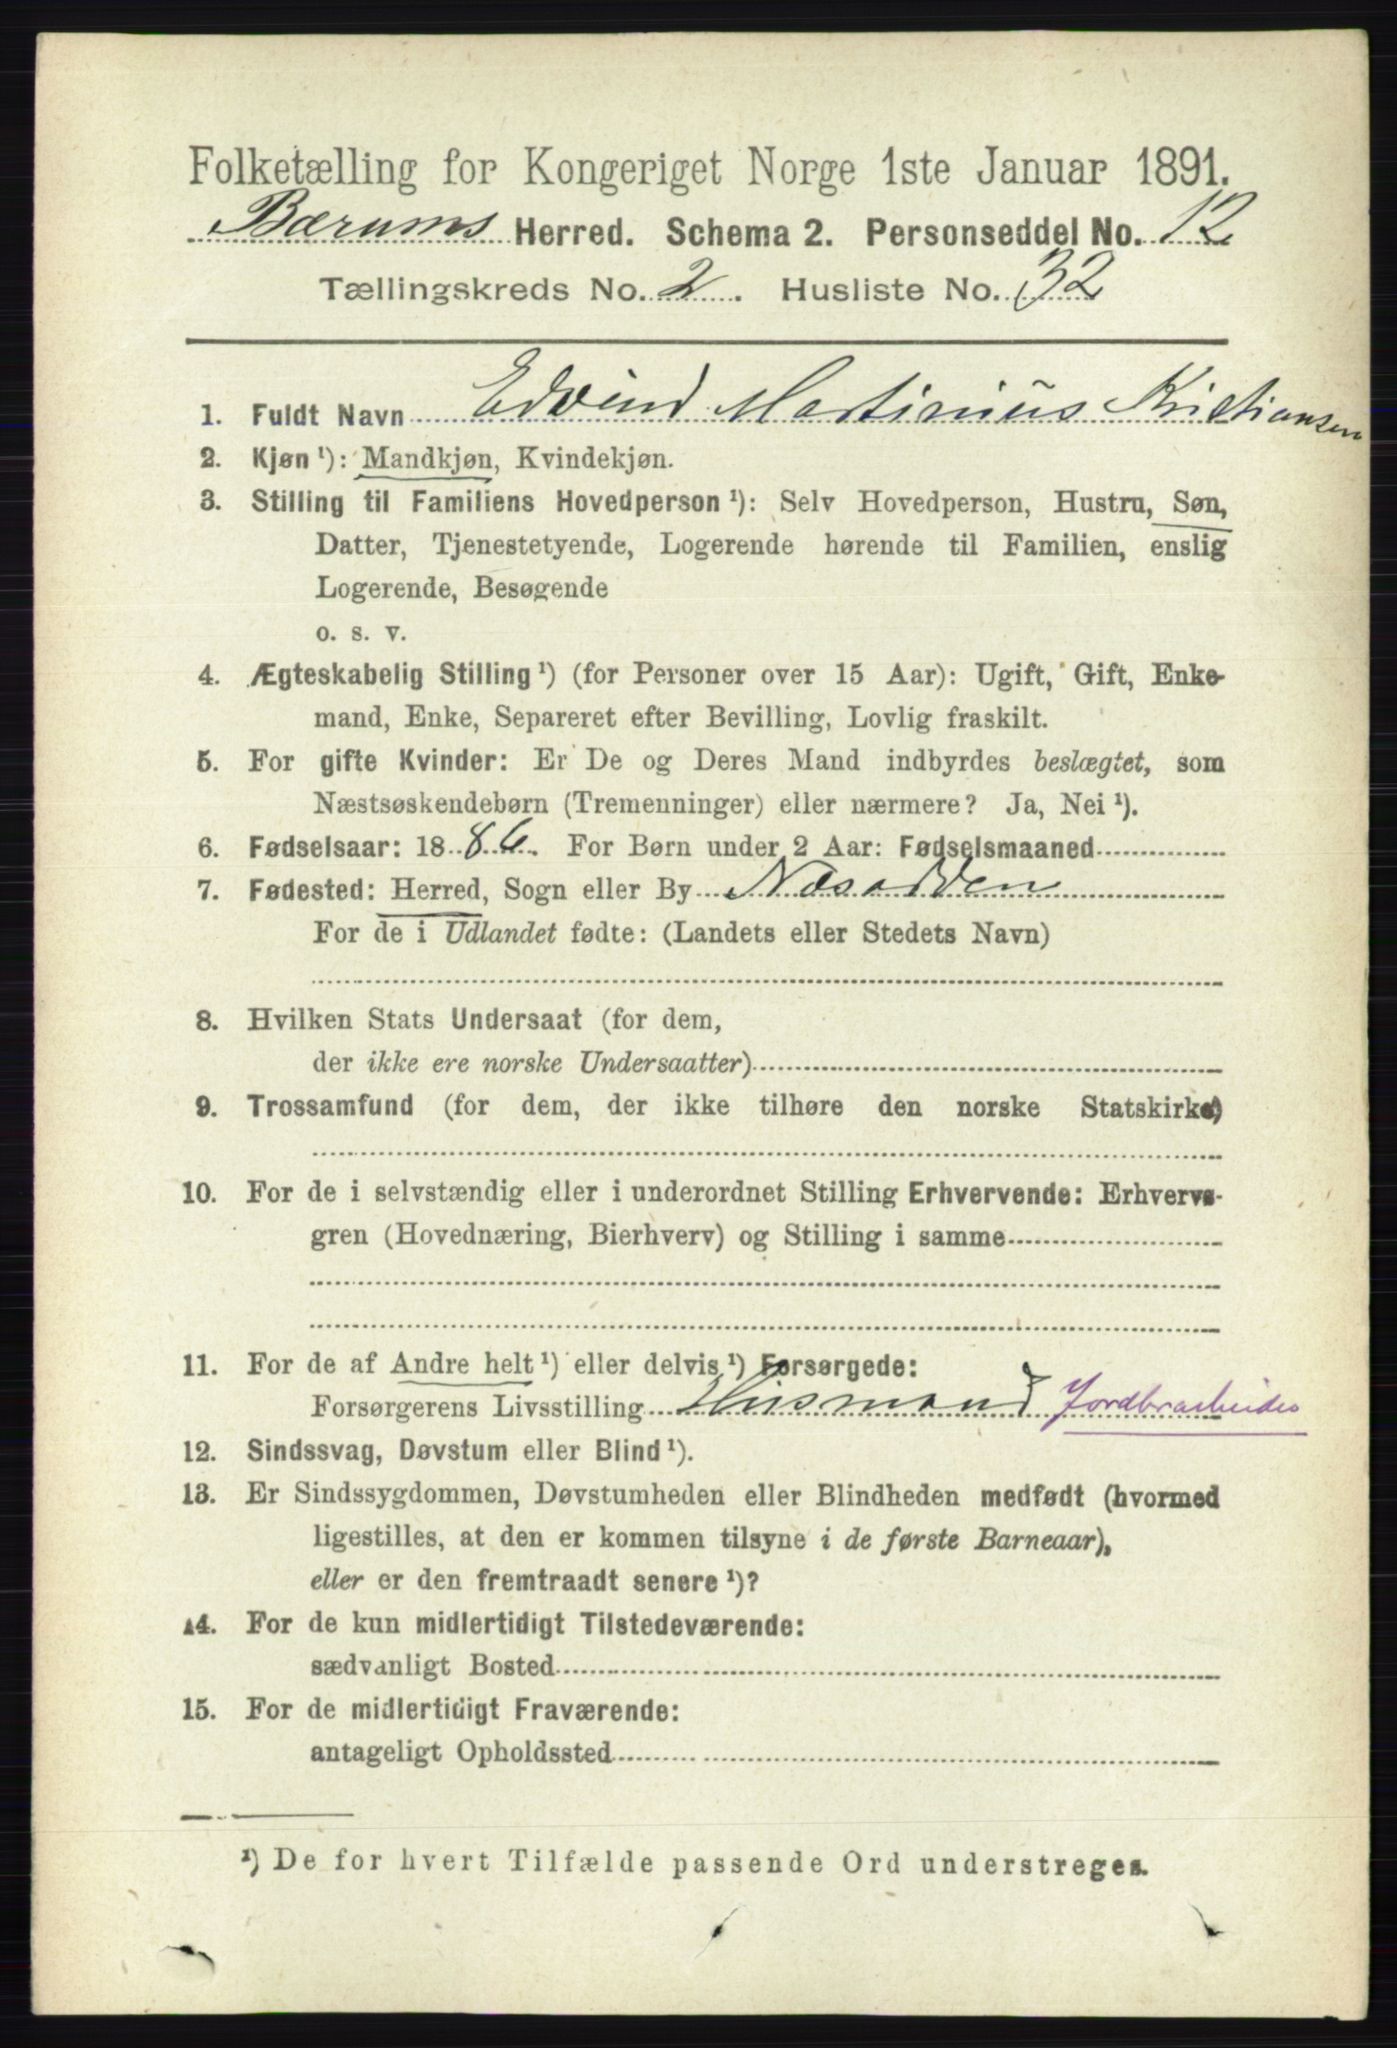 Folketælling for Kongeriget Norge 1ste Januar 1891.
Bærums Herred. Schema 2. Personseddel No. 12
Tællingskreds No. 2. Husliste No. 32
1. Fuldt Navn Edvind Martinius Kristiansen
2. Kjøn ¹): Mandkjøn, Kvindekjøn.
3. Stilling til Familiens Hovedperson ¹): Selv Hovedperson, Hustru, Søn,
Datter, Tjenestetyende, Logerende hørende til Familien, enslig
Logerende, Besøgende
o. s. v.
4. Ægteskabelig Stilling ¹) (for Personer over 15 Aar): Ugift, Gift, Enke-
mand, Enke, Separeret efter Bevilling, Lovlig fraskilt.
5. For gifte Kvinder: Er De og Deres Mand indbyrdes beslægtet, som
Næstsøskendebørn (Tremenninger) eller nærmere? Ja, Nei ¹).
6. Fødselsaar: 1886. For Børn under 2 Aar: Fødselsmaaned
7. Fødested: Herred, Sogn eller By Næsodden
For de i Udlandet fødte: (Landets eller Stedets Navn)
8. Hvilken Stats Undersaat (for dem,
der ikke ere norske Undersaatter)
9. Trossamfund (for dem, der ikke tilhøre den norske Statskirke)
10. For de i selvstændig eller i underordnet Stilling Erhvervende: Erhvervs-
gren (Hovednæring, Bierhverv) og Stilling i samme
11. For de af Andre helt ¹) eller delvis ¹) Forsørgede:
Forsørgerens Livsstilling Husmand Jordbrarbeider
12. Sindssvag, Døvstum eller Blind ¹).
13. Er Sindssygdommen, Døvstumheden eller Blindheden medfødt (hvormed
ligestilles, at den er kommen tilsyne i de første Barneaar),
eller er den fremtraadt senere ¹)?
14. For de kun midlertidigt Tilstedeværende:
sædvanligt Bosted
15. For de midlertidigt Fraværende:
antageligt Opholdssted
¹) De for hvert Tilfælde passende Ord understreges.